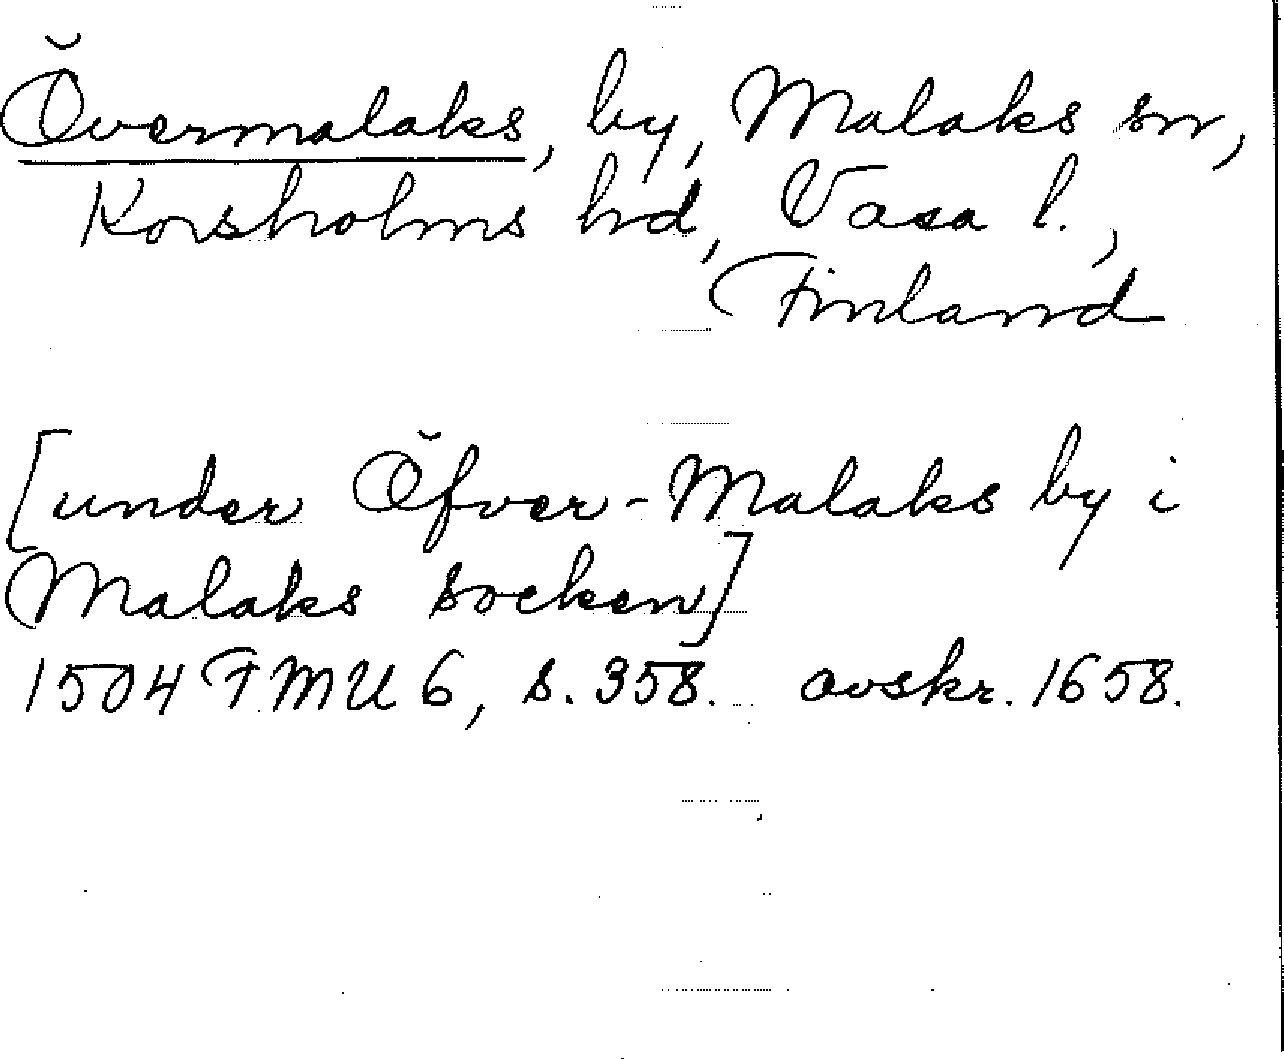 Övermalaks, by, Malaks sn,
Korsholms hd, Vasa l.,
Finland
[under Öfver-Malaks by i
Malaks socken]
1504 FMU 6, s. 358. avskr. 1658.